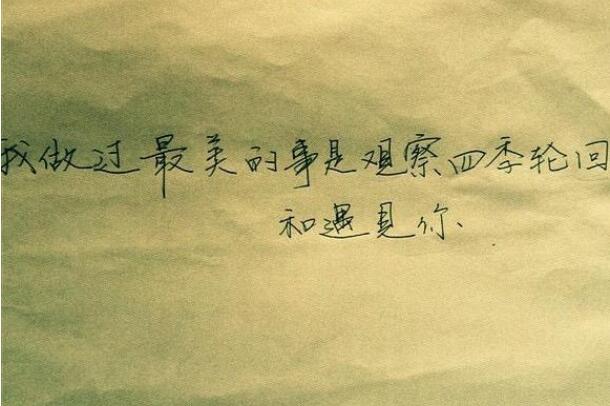 我做过最美的事是观察四季轮回
和遇见你、